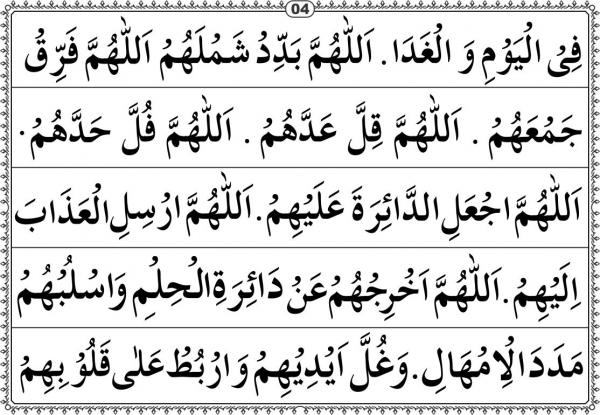 04
فِی الْیَوْمِ وَ الْغَدَا. اَللّٰهُمَّ بَدِّدْ شَمْلَهُمْ اَللّٰهُمَّ فَرِّقْ
جَمْعَهُمْ. اَللّٰهُمَّ قِلَّ عَدَّهُمْ. اَللّٰهُمَّ فُلَّ حَدَّهُمْ.
اَللّٰهُمَّ اجْعَلِ الدَّائِرَةَ عَلَیْهِمْ. اَللّٰهُمَّ ارْسِلِ الْعَذَابَ
اِلَیْهِمْ. اَللّٰهُمَّ اَخْرِجْهُمْ عَنْ دَائِرَةِ الْحِلْمِ وَاسْلُبْهُمْ
مَدَدَ الْاِمْهَالِ. وَغُلَّ اَیْدِیْهِمْ وَارْبُطْ عَلٰی قُلُوْبِهِمْ